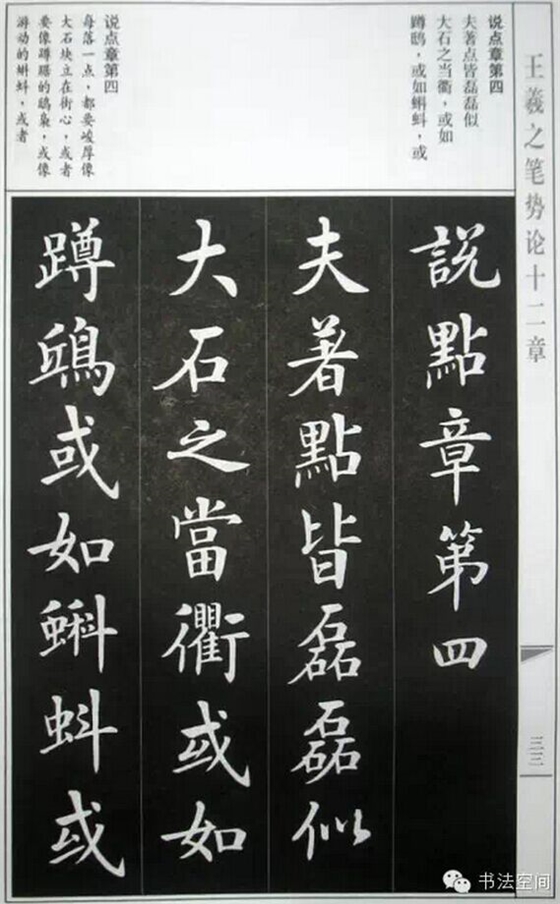 王羲之笔势论十二章
三三
说点章第四
夫著点皆磊磊似
大石之当衢，或如
蹲鸱，或如蝌蚪，或
说点章第四
每落一点，都要峻厚像
大石块立在街心，或者
要像蹲踞的鸱枭，或像
游动的蝌蚪，或者
說點章第四
夫著點皆磊磊似
大石之當衢或如
蹲鴟或如蝌蚪或
书法空间